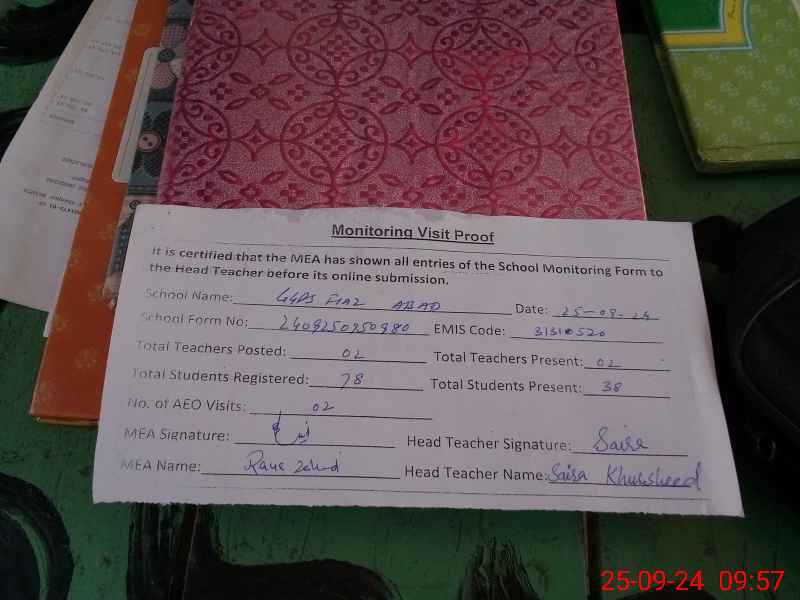 Monitoring Visit Proof
It is certified that the MEA has shown all entries of the School Monitoring Form to
the Head Teacher before its online submission.
School Name: GGPS FIAZ ABAD Date: 25-09-24
School Form No: 2409250950980 EMIS Code: 31310520
Total Teachers Posted: 02 Total Teachers Present: 02
Total Students Registered: 78 Total Students Present: 38
No. of AEO Visits: 02
MEA Signature: Head Teacher Signature: Saira
MEA Name: Head Teacher Name: Saira Khursheed
25-09-24 09:57